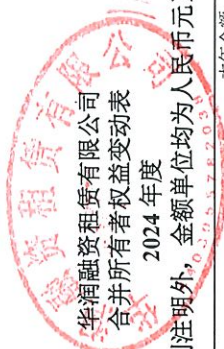 华润融资租赁有限公司
合并所有者权益变动表
2024 年度
注明外，金额单位均为人民币元
本年金额